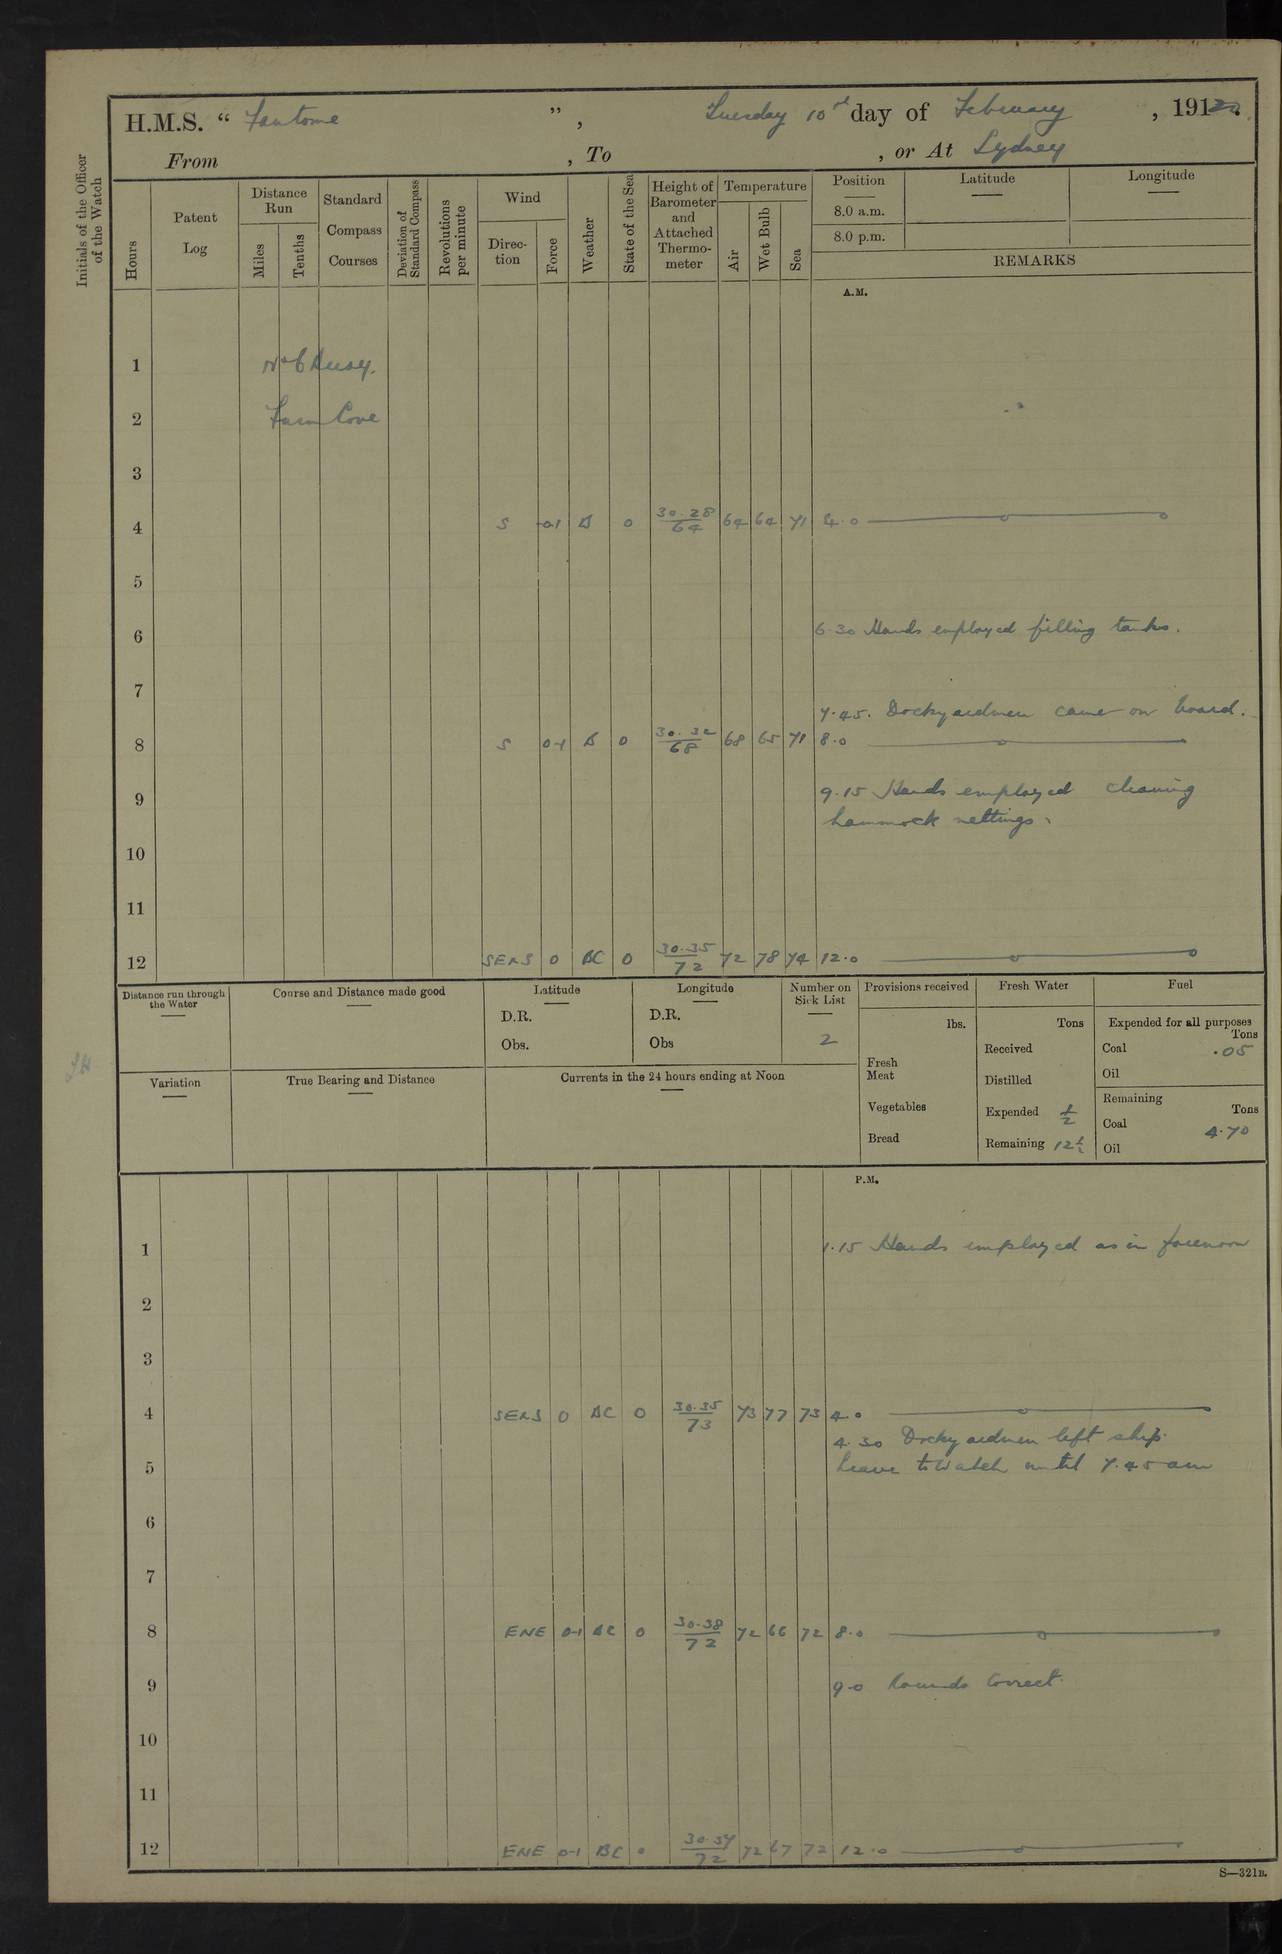 H.M.S. “ Fantome ” , Tuesday 10th day of February , 1920.
From , To , or At Sydney
Initials of the Officer of the Watch
Hours
Patent Log
Distance Run
Miles
Tenths
Standard Compass Courses
Deviation of Standard Compass
Revolutions per minute
Wind
Direc-tion
Force
Weather
State of the Sea
Height of Barometer and Attached Thermo-meter
Temperature
Air
Wet Bulb
Sea
Position
8.0 a.m.
8.0 p.m.
Latitude
Longitude
REMARKS
A.M.
1 No 6 Buoy.
2 Farm Cove
3
4 S 0-1 B 0 30.28/64 64 64 71 4.0
5
6 6.30 Hands employed filling tanks.
7
7.45. Dockyardmen came on board.
8 S 0-1 B 0 30.32/68 68 65 71 8.0
9 9.15 Hands employed cleaning
hammock nettings.
10
11
12 SExS 0 BC 0 30.35/72 72 78 74 12.0
Distance run through the Water
Course and Distance made good
Latitude
D.R.
Obs.
Longitude
D.R.
Obs
Number on Sick List
2
Provisions received
lbs.
Fresh Meat
Vegetables
Bread
Fresh Water
Tons
Received
Distilled
Expended 1/2
Remaining 12 1/2
Fuel
Expended for all purposes
Tons
Coal .05
Oil
Remaining
Tons
Coal 4.70
Oil
Variation
True Bearing and Distance
Currents in the 24 hours ending at Noon
P.M.
1 1.15 Hands employed as in forenoon
2
3
4 SExS 0 BC 0 30.35/73 73 77 73 4.0
4.30 Dockyardmen left ship.
5 Leave to Watch until 7.45 am
6
7
8 ENE 0-1 BC 0 30.38/72 72 66 72 8.0
9 9.0 Rounds Correct.
10
11
12 ENE 0-1 BC 0 30.37/72 72 67 72 12.0
S—321B.